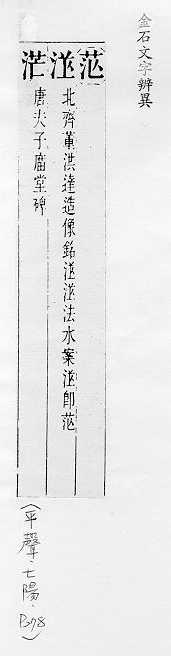 金石文字辨異
茫
北齊董洪達造像銘法水案即茫
茫
唐夫子廟堂碑
（平聲·七陽·）